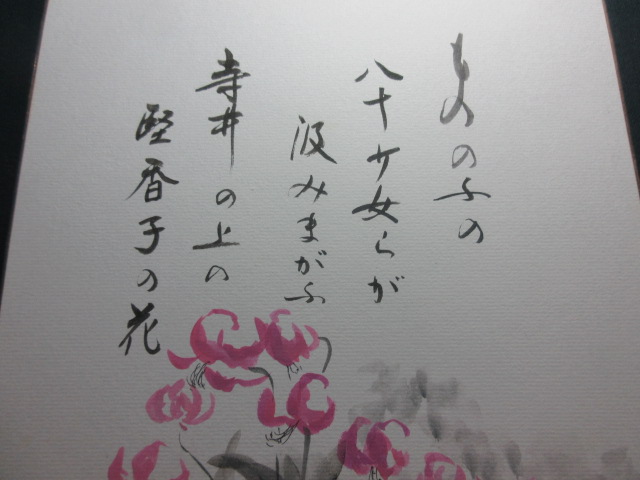 ものゝふの
八十少女らが
汲みまがふ
寺井の上の
堅香子の花